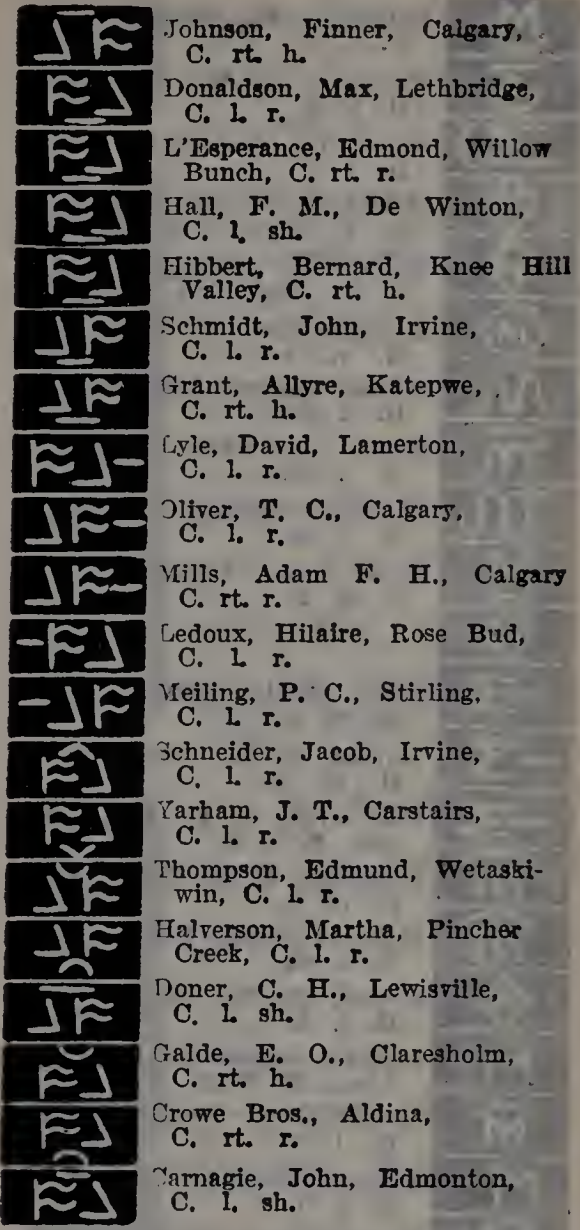 Johnson, Finner, Calgary,
C. rt. h.
Donaldson, Max, Lethbridge,
C. l. r.
L'Esperance, Edmond, Willow
Bunch, C. rt. r.
Hall, F. M., De Winton,
C. l. sh.
Hibbert, Bernard, Knee Hill
Valley, C. rt. h.
Schmidt, John, Irvine,
C. l. r.
Grant, Allyre, Katepwe,
C. rt. h.
Lyle, David, Lamerton,
C. l. r.
Oliver, T. C., Calgary,
C. l. r.
Mills, Adam F. H., Calgary
C. rt. r.
Ledoux, Hilaire, Rose Bud,
C. l. r.
Meiling, P. C., Stirling,
C. l. r.
Schneider, Jacob, Irvine,
C. l. r.
Yarham, J. T., Carstairs,
C. l. r.
Thompson, Edmund, Wetaski-
win, C. l. r.
Halverson, Martha, Pincher
Creek, C. l. r.
Doner, C. H., Lewisville,
C. l. sh.
Galde, E. O., Claresholm,
C. rt. h.
Crowe Bros., Aldina,
C. rt. r.
Carnagie, John, Edmonton,
C. l. sh.